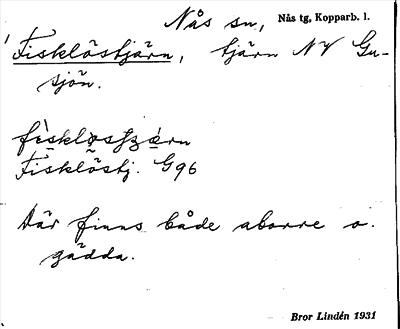 Nås sn, Nås tg, Kopparb. l.
Fisklöstjärn, tjärn NV Gu-
sjön.
Fisklöstj. G96
Där finns både aborre o.
gädda.
Bror Lindén 1931